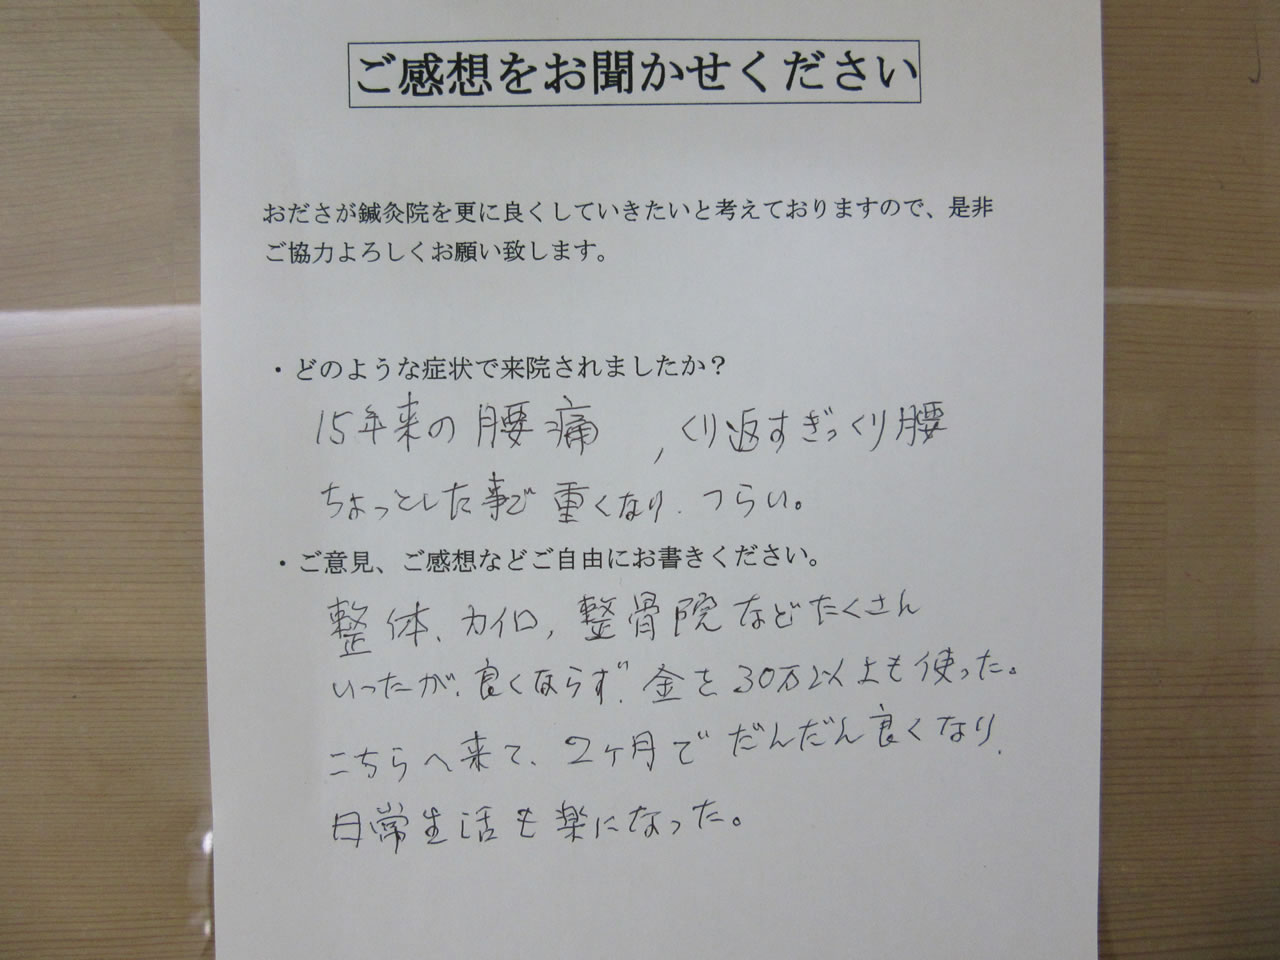 ご感想をお聞かせください
おださが鍼灸院を更に良くしていきたいと考えておりますので、是非
ご協力よろしくお願い致します。
・どのような症状で来院されましたか？
15年来の腰痛 , くり返すぎっくり腰
ちょっとした事で重くなり、つらい。
・ご意見、ご感想などご自由にお書きください。
整体、カイロ, 整骨院などたくさん
いったが、良くならず、金を30万以上も使った。
こちらへ来て、2ヶ月でだんだん良くなり、
日常生活も楽になった。